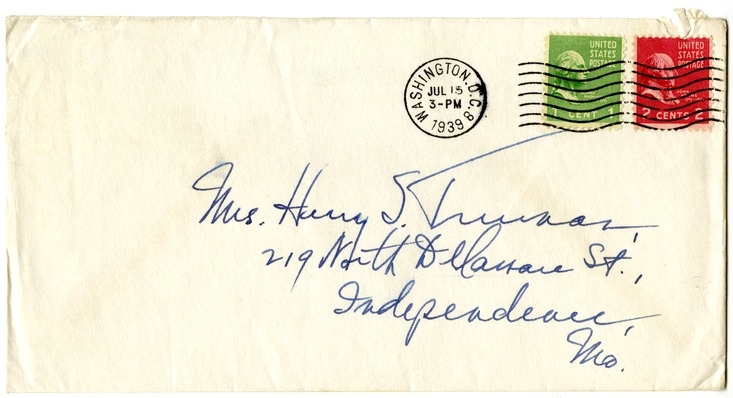 WASHINGTON, D.C. 8
JUL 15
3-PM
1939
UNITED
STATES
POSTAGE
1 CENT 1
UNITED
STATES
POSTAGE
JOHN
ADAMS
2 CENTS 2
Mrs. Harry S. Truman,
219 North Delaware St.,
Independence,
Mo.